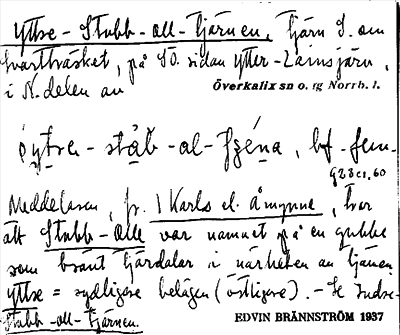 Yttre-Stubb-oll-tjärnen, tjärn S. om
Svartträsket, på SO. sidan Ytter-Lainsjärv,
i N. delen av
Överkalix sn o. tg Norrb. l.
bf. fem.
Meddelaren, fr. Karls el. Åmynne, tror
att Stubb-Olle var namnet på en gubbe
som bränt tjärdalar i närheten av tjärnen
Yttre = sydligare belägen (östligare). - Se Indre-
Stubb-oll-tjärnen.
EDVIN BRÄNNSTRÖM 1937